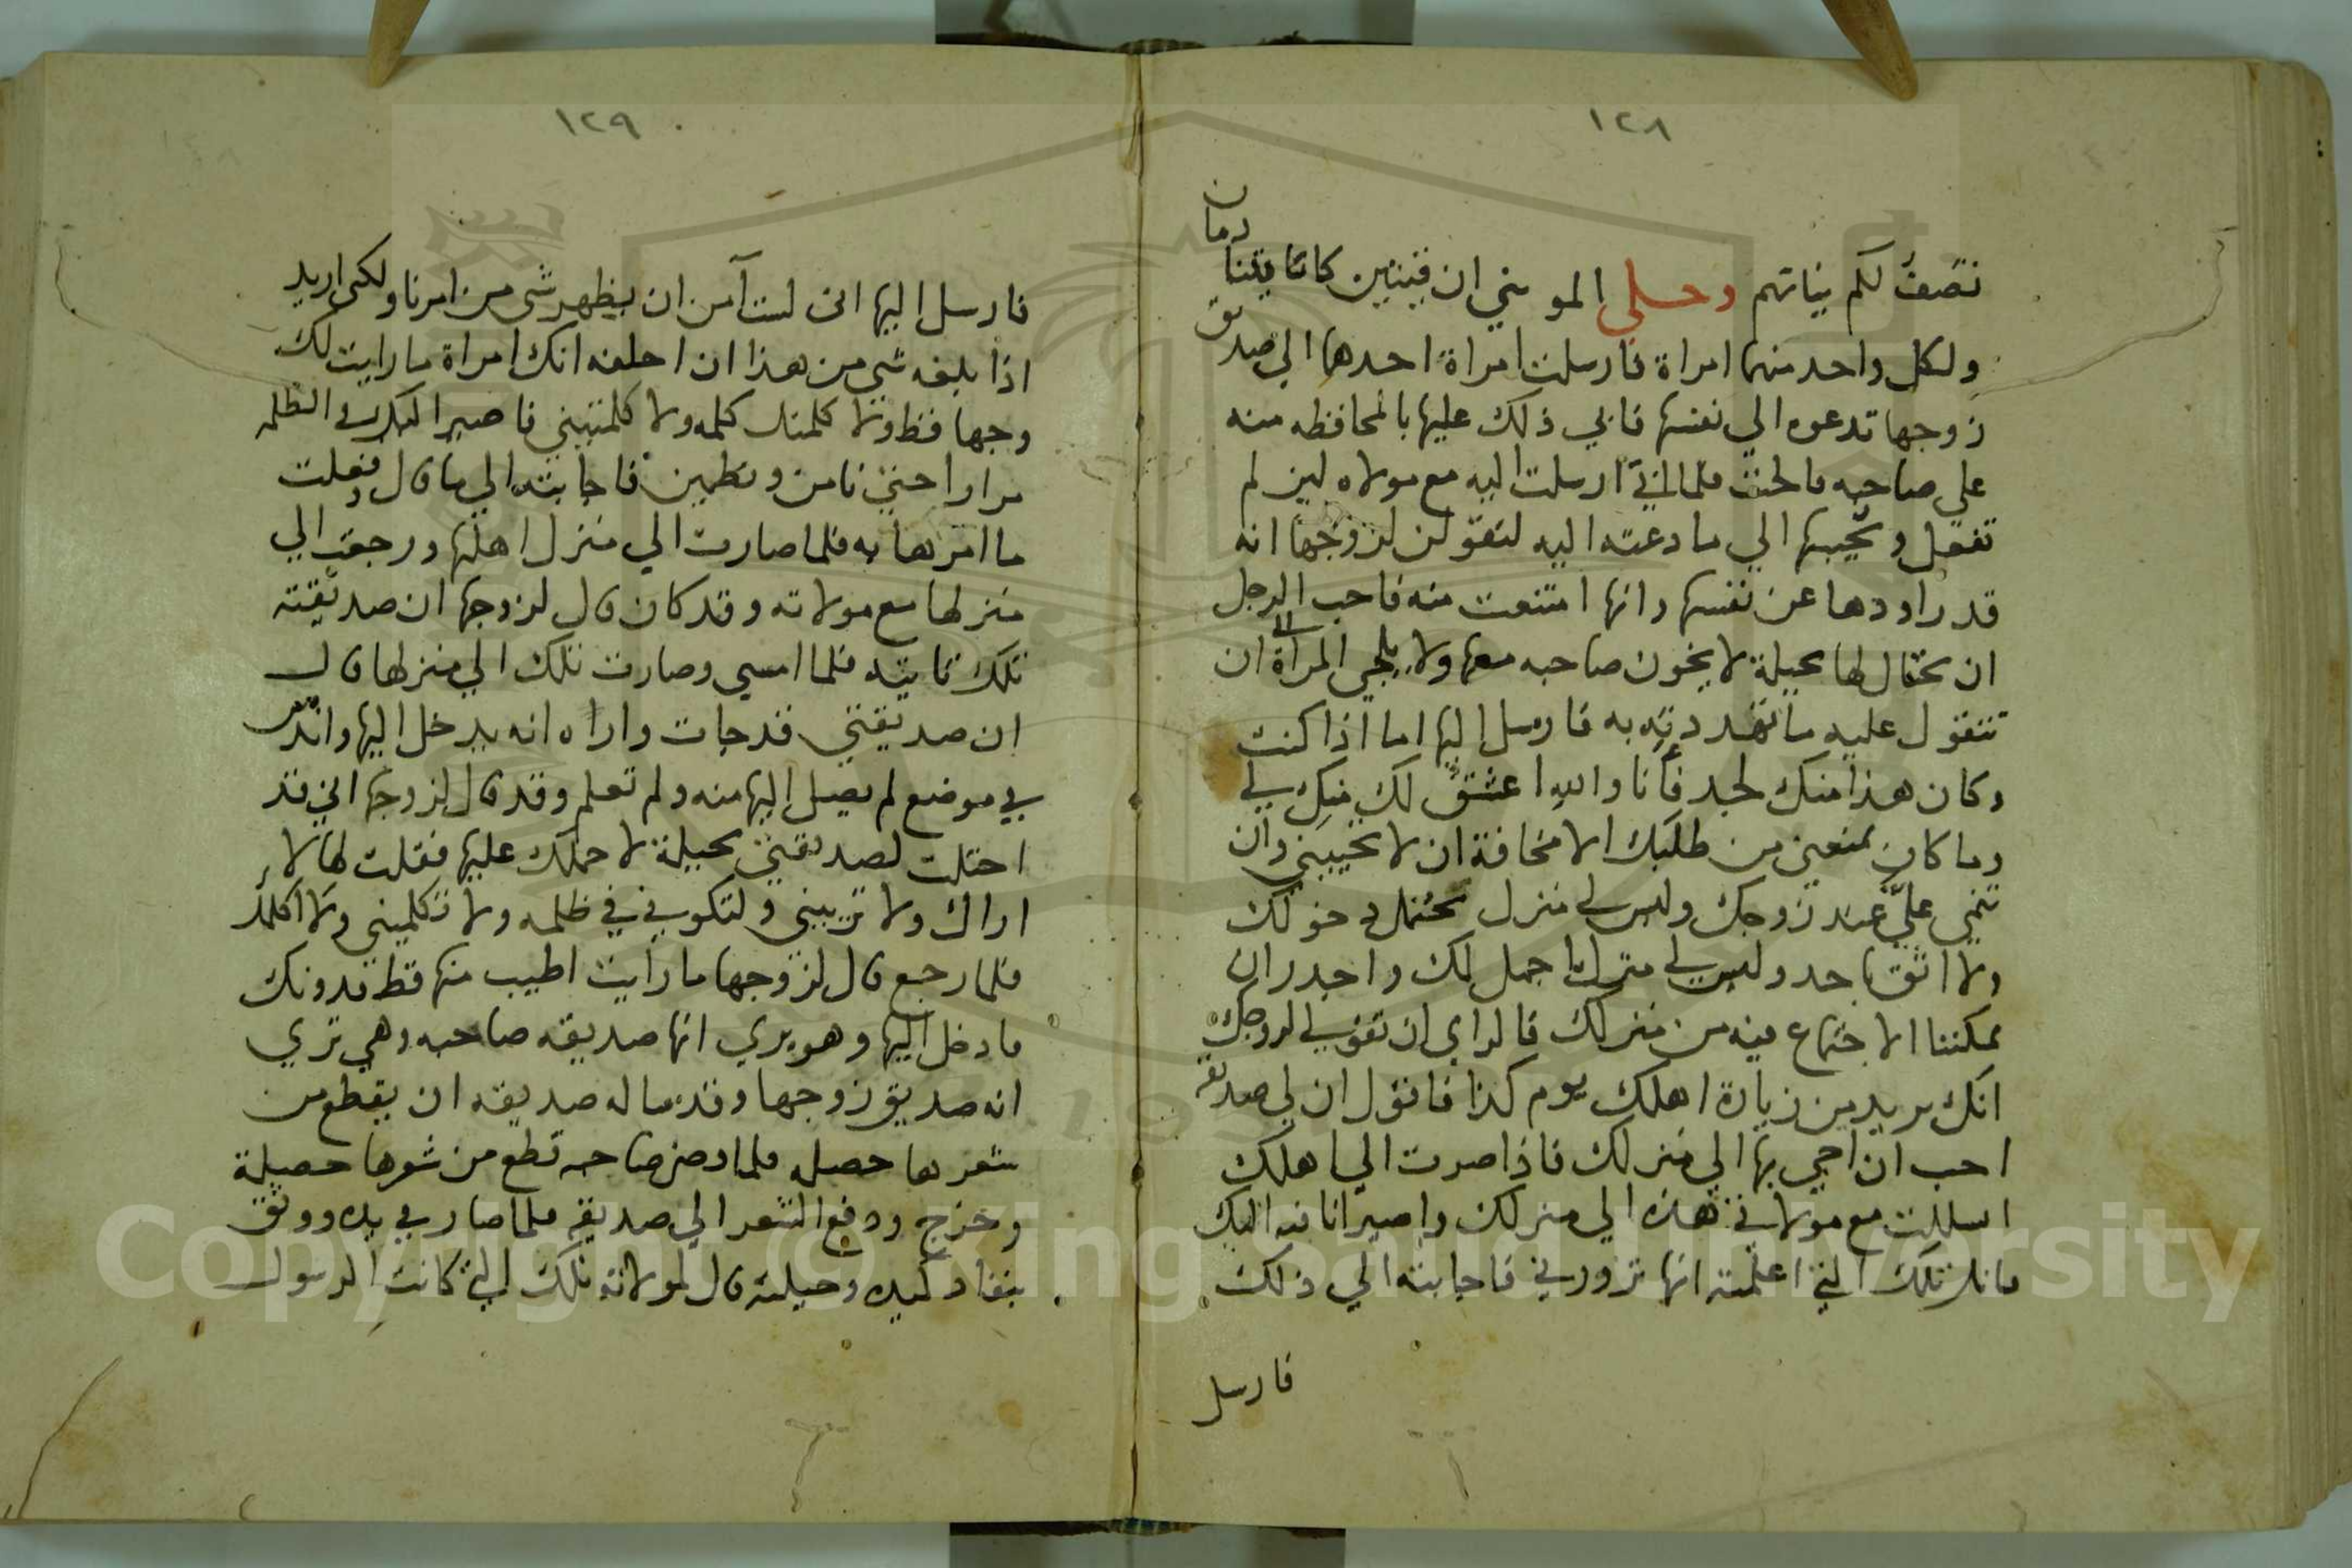 ١٢٨
نصف لكم نياتهم وحكي الموسي ان فتيين كانا يتنادمان
ولكل واحد منهما امراة فارسلت امراة احدهما الي صديق
زوجها تدعوه الي نفسها فابي ذلك عليها بالمحافظه منه
علي صاحبه فالحت فلما ابي ارسلت اليه مع مولاه لين لم
تفعل وتجيبها الي ما دعته اليه لتقولن لزوجها انه
قد راودها عن نفسها وانها امتنعت منه فاحب الرجل
ان يحتال لها بحيلة لا يخون صاحبه معها ولا يلجي المراة ان
تتقول عليه ما تهددته به فارسل اليها اما اذا كنت
وكان هذا منك لجد فانا والله اعشق لك منك لي
وما كان يمنعني من طلبك الا مخافة ان لا تجيبني وان
تنمي علي عند زوجك وليس لي منزل يحتمل دخولك
ولا اثق باحد وليس لي منزل اجمل لك واجدر ان
يمكننا الاجتماع فيه من منزلك فالراي ان تقولي لزوجك
انك تريدين زيارة اهلك يوم كذا فاقول ان لي صديقة
احب ان اجي بها الي منزلك فاذا صرت الي اهلك
انسللت مع مولاتي هذه الي منزلك واصير انا فيه اليك
فانك تلك التي اعلمته انها تزورني فاجابته الي ذلك
فارسل
١٢٩
فارسل اليها اني لست آمن ان يظهر شي من امرنا ولكني اريد
اذا بلغه شي من هذا ان احلفه انك امراة ما رايت لك
وجها قط ولا كلمتك كلمه ولا كلمتيني فاصير اليك في الظلمه
مرارا حتي نامن ونطمين فاجابته الي ما قال وفعلت
ما امرها به فلما صارت الي منزل اهلها ورجعت الي
منزلها مع مولاته وقد كان قال لزوجها ان صديقته
تلك تاتيه فلما امسي وصارت تلك الي منزلها قال
ان صديقتي قد جات واراه انه يدخل اليها واندس
في موضع لم يصل اليها منه ولم تعلم وقد قال لزوجها اني قد
احتلت لصديقتي بحيلة لاحملك عليها فقلت لها لا
اراك ولا تريني ولتكوني في ظلمه ولا تكلميني ولا اكلمك
فلما رجع قال لزوجها ما رايت اطيب منها قط فدونك
فادخل اليها وهو يري انها صديقه صاحبه وهي تري
انه صديق زوجها وقد ساله صديقه ان يقطع من
شعرها خصله فلما دخل صاحبه قطع من شعرها خصيلة
وخرج ودفع الشعر الي صديقه فلما صار في يده ووثق
بنفاد كيده وحيلته قال لمولاته تلك التي كانت الرسول